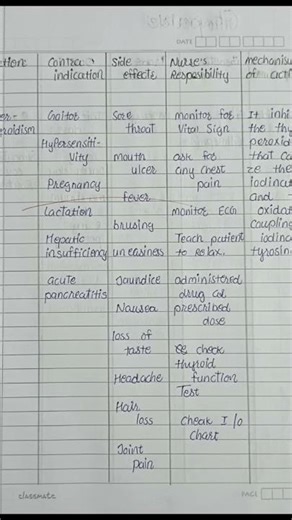 DATE
ction
Contra
indication
Side
effects
Nurse's
Resposibility
mechanism
of acti
er-
roidism
Goiter
Hypersensiti-
vity
Pregnancy
Lactation
Hepatic
insufficiency
acute
pancreatitis
Sore
throat
mouth
ulcer
fever
brusing
uneasiness
Jaundice
Nausea
loss of
taste
Headache
Hair
loss
Joint
pain
monitor for
Vital Sign
ask for
any chest
pain
monitor ECG
Teach patient
to Relax.
administered
drug as
prescribed
dose
check
thyroid
function
Test
Cheak I/o
chart
It inhi
the thy
peroxid
that ca
ze the
iodinat
and
oxidat
coupling
iodina
tyrosin
classmate
PAGE